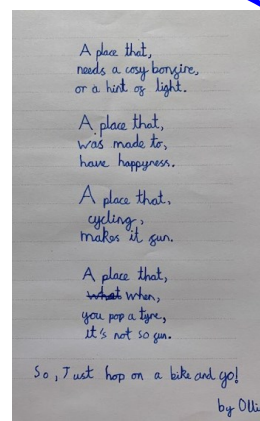 A place that,
needs a cosy bonfire,
or a hint of light.
A place that,
was made to,
have happyness.
A place that,
cycling,
makes it fun.
A place that,
what when,
you pop a tyre,
it's not so fun.
So, Just hop on a bike and go!
by Olli